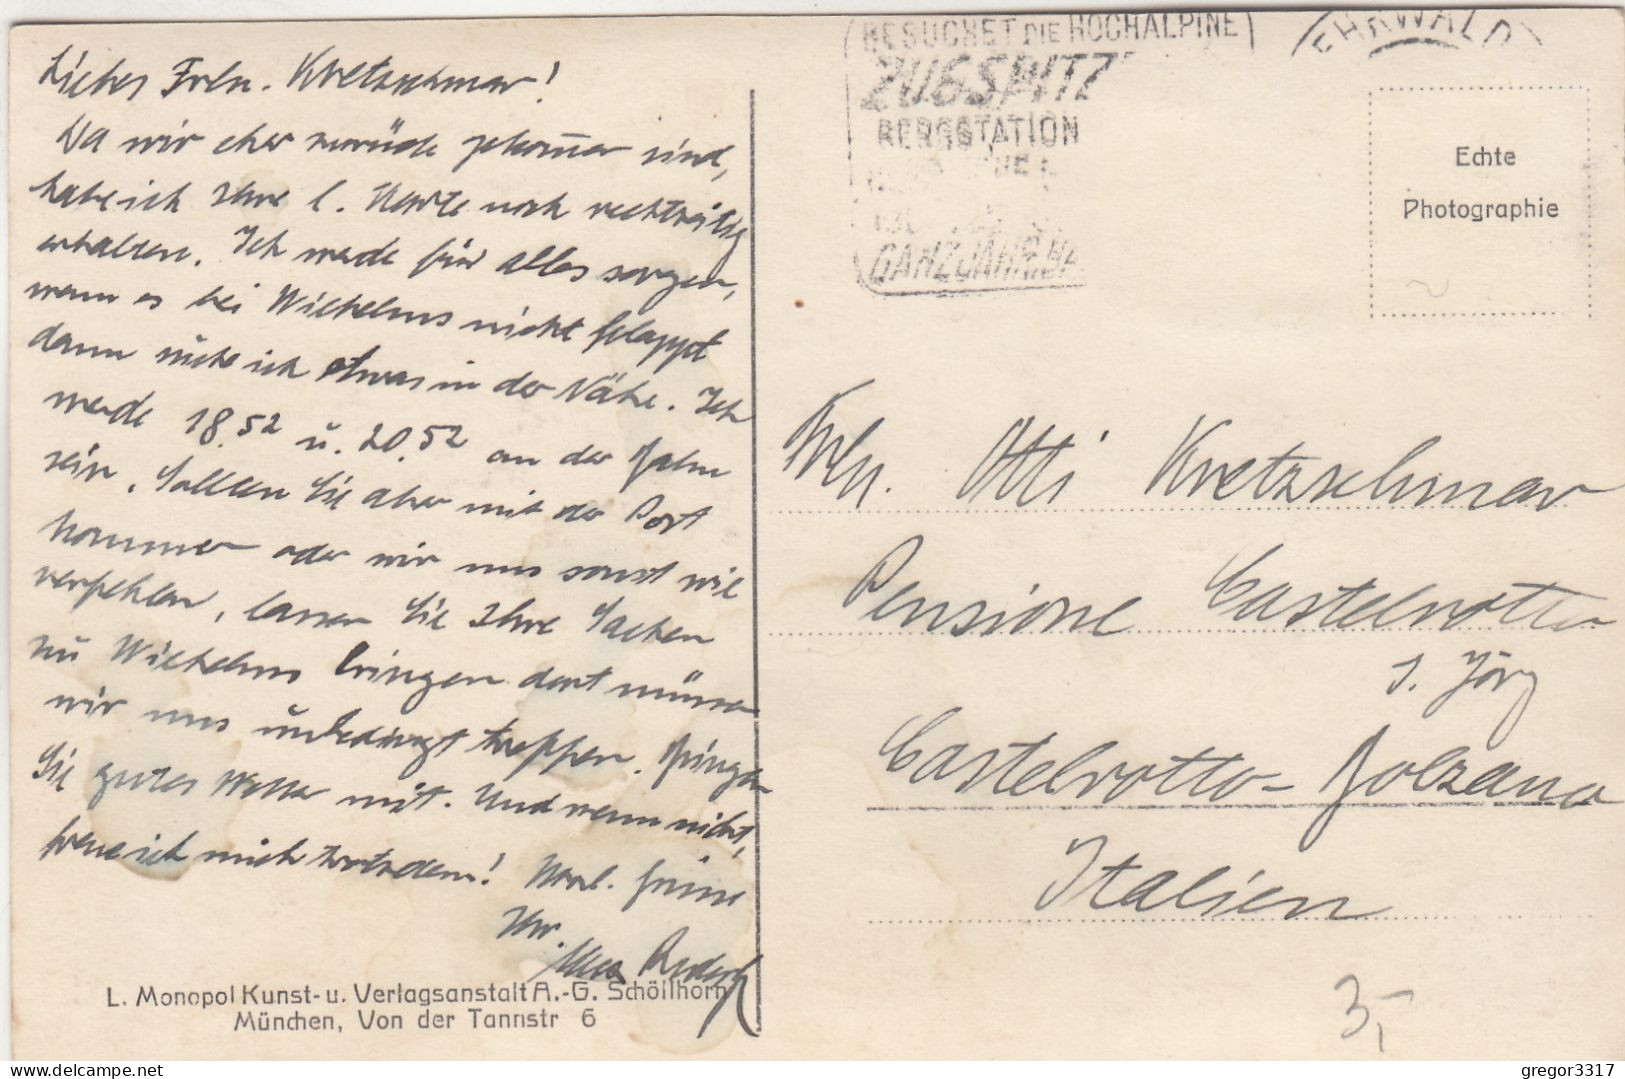 Liebes Frln. Kretzschmar!
Da wir eher zurück gekommen sind,
habe ich Ihre l. Karte noch rechtzeitig
erhalten. Ich werde für alles sorgen,
wenn es bei Wilhelms nicht klappt
dann suche ich etwas in der Nähe. Ich
werde 18.52 u. 20.52 an der Bahn
sein. Sollten Sie aber mit der Post
kommen oder wir uns sonst wie
verfehlen, lassen Sie Ihre Sachen
zu Wilhelms bringen dort müssen
wir uns unbedingt treffen. Bringen
Sie gutes Wetter mit. Und wenn nicht,
freue ich mich trotzdem! Herzl. Grüsse
Ihr
L. Monopol Kunst- u. Verlagsanstalt A.-G. Schöllhorn
München, Von der Tannstr 6
BESUCHET DIE HOCHALPINE
ZUGSPITZ
BERGSTATION
GANZJÄHR. BE
EHRWALD
Echte
Photographie
Frln. Otti Kretzschmar
Pensione Castelrotto
S. Jörg
Castelrotto-Bolzano
Italien
3,-
gregor3317